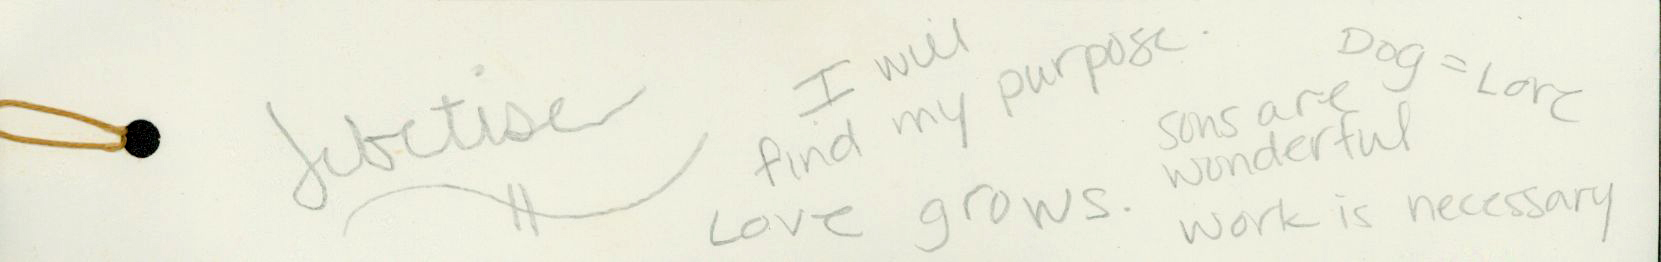 I will
find my purpose.
Love grows.
Dog = Love
sons are
wonderful
work is necessary